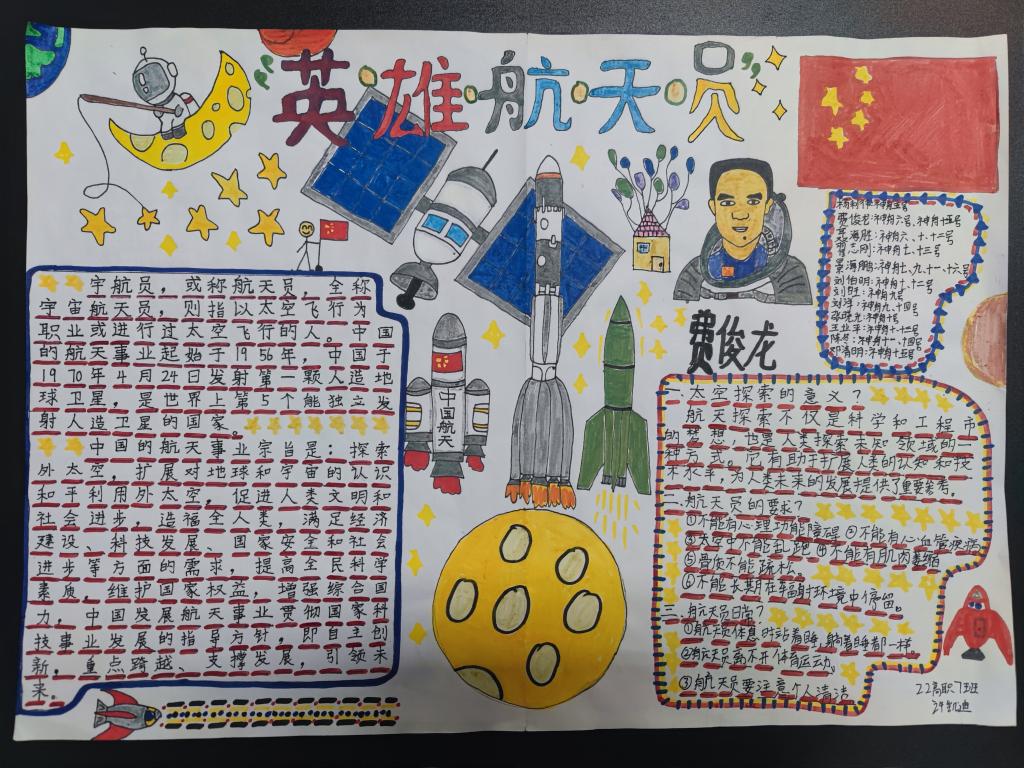 “英·雄·航·天·员”
宇航员，或称航天员，全称
宇宙航天员，则指以太空飞行为
职业或进行过太空飞行的人。中国
的航天事业起始于1956年，中国于
1970年4月24日发射第一颗人造地
球卫星，是世界上第5个能独立发
射人造卫星的国家。
中国的航天事业宗旨是：探索
外太空，扩展对地球和宇宙的认识
和平利用外太空，促进人类文明和
社会进步，造福全人类，满足经济
建设、科技发展、国家安全和社会
进步等方面的需求，提高全民科学
素质，维护国家权益，增强综合国
力，中国发展航天事业贯彻国家科
技事业发展的指导方针，即自主创
新，重点跨越、支撑发展，引领未
来。
中国航天
费俊龙
费俊龙：神舟六号、神舟十五号
聂海胜：神舟六、十、十二号
翟志刚：神舟七、十三号
景海鹏：神舟七、九、十一、十六号
刘伯明：神舟七、十二号
刘旺：神舟九号
刘洋：神舟九、十四号
张晓光：神舟十号
王亚平：神舟十、十三号
陈冬：神舟十一、十四号
邓清明：神舟十五号
一、太空探索的意义？
航天探索不仅是科学和工程师
的梦想，也是人类探索未知领域的一
种方式。它有助于扩展人类的认知和技
术水平，为人类未来的发展提供了重要参考。
二、航天员的要求？
①不能有心理功能障碍 ②不能有心血管疾病
③太空中不能乱跑 ④不能有肌肉萎缩
⑤骨质不能疏松。
⑥不能长期在辐射环境中停留。
三、航天员日常？
①航天员休息时站着睡，躺着睡都一样。
②航天员离不开体育运动。
③航天员要注意个人清洁
22高职7班